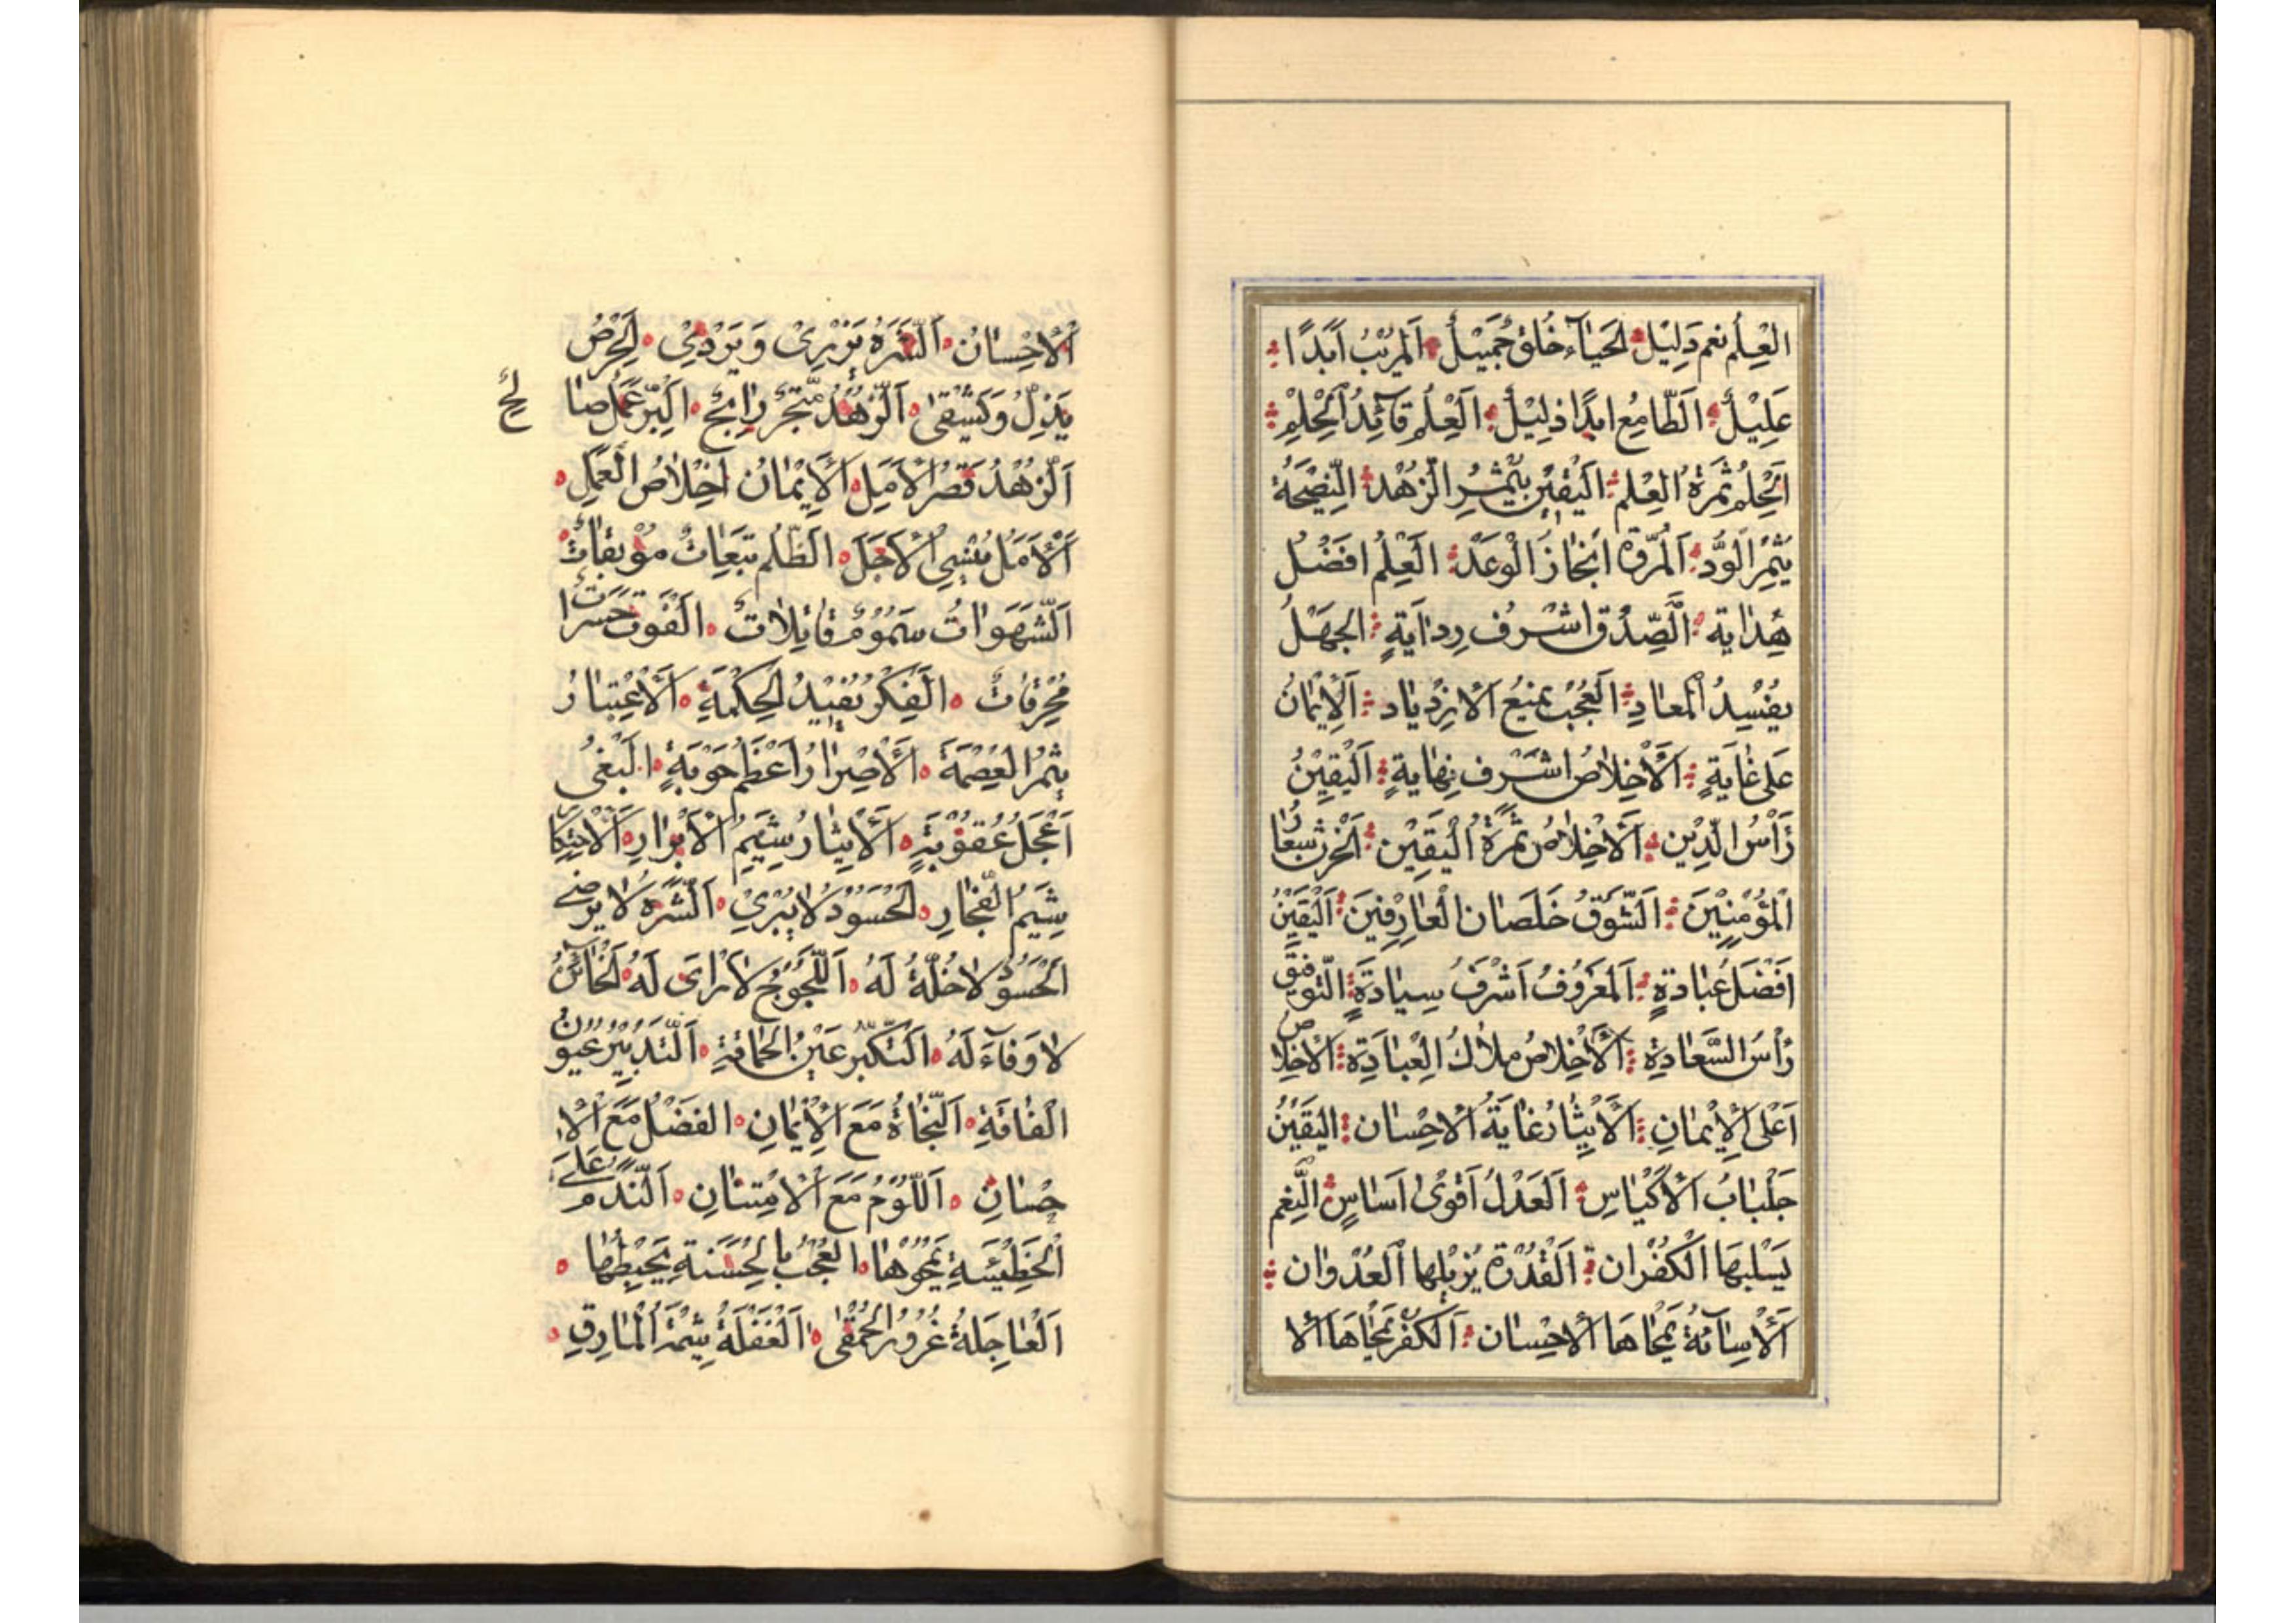 العِلْمُ نعم دَلِيْل الحَيَاۤء خُلق جَمِيْلٌ اَلمُريْبُ اَبَدًا
عَلِيْلٌ الَطّامِع ابدًا ذلِيْلٌ العِلْمُ قآئِدُ الْحِلْمِ
اَلْحِلم ثَمَرَةُ العِلْم اليَقِيْن يُثْمِرِ الزُهْد النَّصِيْحَةُ
يُثْمِرُ الْوُدَّ اَلمُرّوة اِنْجَازَ الْوَعْد العِلْمُ افضَلُ
هِدَاية الَصِّدْق اشْرف رِدايَةٍ الجهَلُ
يفْسِدُ المعَادِ العُجْب يمْنَعُ الازْدِيَاد اَلْاِيْمَانُ
عَلى غَايَةٍ اَلْاَخِلَاصُ اشْرف نِهايةٍ اَليَقِيْنُ
رَأسُ الدِّيْن اَلاخِلَاصُ ثَمَرَةُ اليَقِيْن اَلْحُزن شِعَارُ
الْمُؤْمِنِيْنَ الَشَّوقُ خَلصَان الْعَارِفِيْنَ اَلْيَقِيْنُ
اَفْضَلُ عِبَادةٍ اَلمَعْرُوْفُ اَشْرَفُ سِيَادَةٍ التّوفيق
رَأسُ السَّعَادةِ اَلْاِخْلاصُ مِلاكُ العِبَادَةِ الاْخِلاص
اَعْلَى الْاِيْمَانِ اَلْاِيْثَارُ غَايَةُ الاِحْسان اليَقِيْنُ
جَلْبَابُ الاَكْيَاسِ اَلعَدْلُ اَقْوٰى اَسَاسٍ الَنِّعَم
يَسْلبهَا الْكُفْران اَلْقُدْرَة يُزيْلها العُدْوان
اَلْاِسَآئةُ يَمْحَاهَا الاحْسان اَلْكُفْر يَمْحَاهَا الا
اَلْاِحْسَانُ اَلَشَّرَهُ يَزْرِىْ وَيَرْدِيْ الحِرْصُ
يَذِلُّ وَيَشْقٰى اَلَزُّهْدُ مَتْجَرٌ رَابِحٌ اَلْبِرُّ عَمَلٌ صا لحٌ
اَلَزّهْدُ قصْرُ الاَمَلِ اَلْاِيْمَانُ اِخْلَاصُ الْعَمَلِ
اَلْاَمَلُ يُنْسِى الْاَجَلَ الظُّلم تَبِعَاتٌ مُوْبِقَاتٌ
اَلشَّهَوَاتُ سَمُوْمٌ قَاتِلَاتٌ اَلْفَوْتُ حَسَرَاتٌ
مُحْرِقَاتٌ اَلْفِكْرُ يُفِيْدُ الحِكْمَةِ اَلْاِعْتِبَارُ
يثمرُ العِصْمَة اَلْاِصْرَارُ اَعْظَم حَوْبَةٍ اَلْبَغْىُ
اَعْجَلُ عُقُوْبَةٍ اَلْاِيْثَارُ شِيَمُ الْاَبْرَارِ اَلْاحْتِكَارُ
شِيَمُ الْفُجّارِ اَلْحَسُوْدُ لَا يَبْرِئ اَلشَّرِهُ لا يَرْضٰى
اَلْحَسُوْدُ لا خُلّةُ لَهُ اَللّجُوْجُ لا رَاىَ لَهُ الخَائِنُ
لا وَفَآءَ لَهُ اَلْتَكَبّرُ عَيْنُ الحَمَاقةِ اَلتَّبْذِيْرُ عُنْوانُ
الْفَاقَةِ اَلنّجَاةُ مَعَ الْاِيْمَانِ الفَضْلُ مَعَ الْاِ
حْسَانِ اَللَّوْمُ مَعَ الْاِمْتِنَانِ اَلنَّدَمُ عَلٰى
الْخَطِيْئَةِ يَمْحُوْهَا العُجْبُ بِالْحَسَنَةِ يَحْبِطُهَا
اَلْعَاجِلَةُ غُرُوْرُ الْحُمْقٰى اَلْغَفْلَةُ شِيْمَةُ الْمَارِقِ